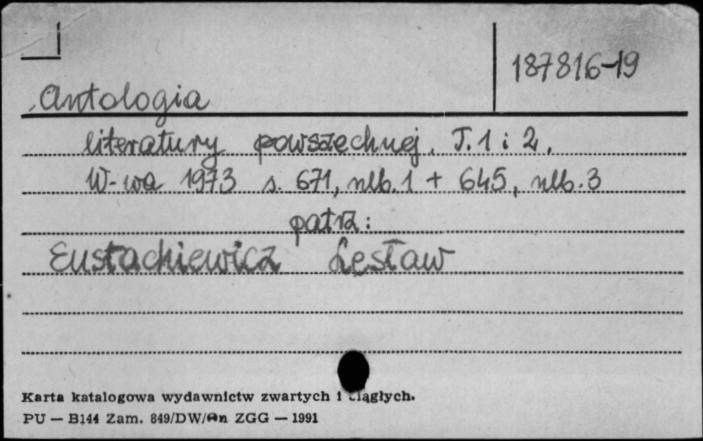 187816-19
Antologia
literatury powszechnej. T. 1 i 2.
W-wa 1973 s. 671, nlb. 1 + 645, nlb. 3
patrz:
Eustachiewicz Lesław
Karta katalogowa wydawnictw zwartych i ciągłych.
PU — B144 Zam. 849/DW/An ZGG — 1991